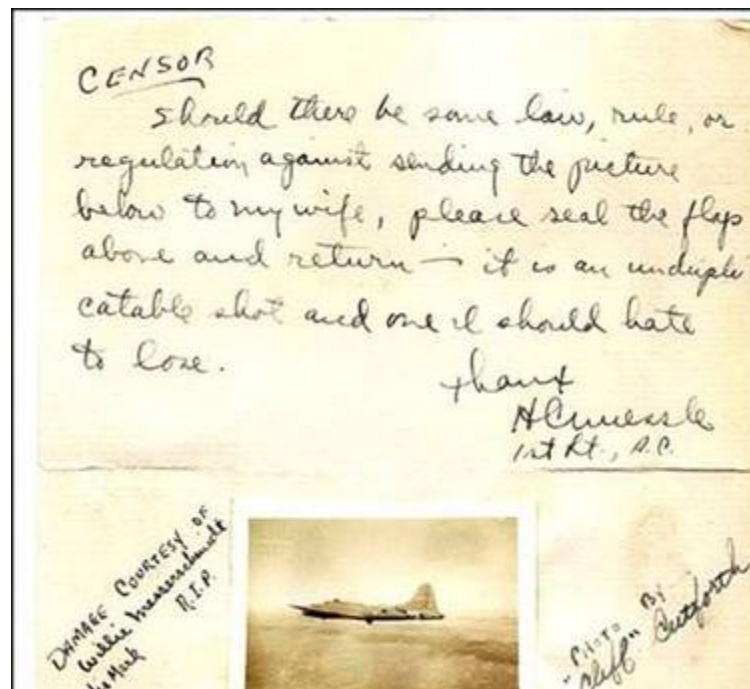 CENSOR
Should there be some law, rule, or
regulation against sending the picture
below to my wife, please seal the flap
above and return — it is an undupli
catable shot and one I should hate
to lose.
Thanx
1st Lt., A.C.
DAMAGE COURTESY OF
Willie Messerschmidt
R.I.P.
PHOTO BY
"Cliff" Cutforth